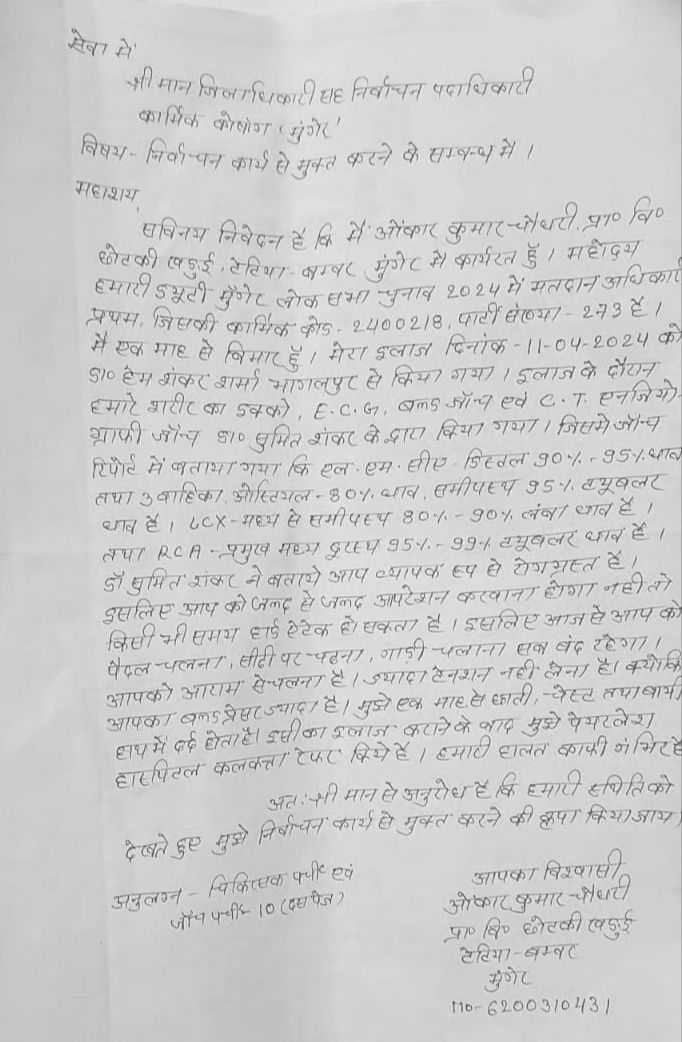 सेवा में
श्री मान जिलाधिकारी सह निर्वाचन पदाधिकारी
कार्मिक कोषांग 'मुंगेर'
विषय - निर्वाचन कार्य से मुक्त करने के सम्बन्ध में ।
महाशय,
सविनय निवेदन है कि मैं ओंकार कुमार चौधरी, प्रा० वि०
छोटकी खड़ुई, टेटिया-बम्बर मुंगेर में कार्यरत हूँ । महोदय
हमारी ड्यूटी मुंगेर लोक सभा चुनाव 2024 में मतदान अधिकारी
प्रथम, जिसकी कार्मिक कोड - 2400218, पार्टी संख्या - 273 है ।
मैं एक माह से बिमार हूँ । मेरा इलाज दिनांक - 11-04-2024 को
डा० हेम शंकर शर्मा भागलपुर से किया गया । इलाज के दौरान
हमारे शरीर का इक्को, E.C.G, बल्ड जाँच एवं C.T. एनजियो-
ग्राफी जाँच डा० सुमित शंकर के द्वारा किया गया । जिसमें जाँच
रिपोर्ट में बताया गया कि एल. एम. सीए - डिस्टल 90% - 95% धाव
तथा 3 वाहिका, ओस्टियल - 80% धाव, समीपस्थ 95% ट्यूबलर
धाव है । LCX - मध्य से समीपस्थ 80% - 90% लंबा धाव है ।
तथा RCA - प्रमुख मध्य दूरस्थ 95% - 99% ट्यूबलर धाव है ।
डॉ सुमित शंकर ने बताये आप व्यापक रूप से रोगग्रस्त है ।
इसलिए आप को जल्द से जल्द आपरेशन करवाना होगा नही तो
किसी भी समय हार्ड ऐटेक हो सकता है । इसलिए आज से आप को
पैदल चलना, सीढी पर चढना, गाडी चलाना सब बंद रहेगा ।
आपको आराम से चलना है । ज्यादा टेनशन नहीं लेना है । क्योंकि
आपका बल्डप्रेसर ज्यादा है । मुझे एक माह से छाती, चेस्ट तथा बायां
हाथ में दर्द होता है । इसी का इलाज कराने के बाद मुझे पेयरलेश
हास्पिटल कलकत्ता रेफर किये है । हमारी हालत काफी गंभिर है
अतः श्री मान से अनुरोध है कि हमारी स्थिति को
देखते हुए मुझे निर्वाचन कार्य से मुक्त करने की कृपा किया जाय ।
अनुलग्न - चिकित्सक पर्ची एवं
जाँच पर्ची - 10 (दस पेज)
आपका विश्वासी
ओंकार कुमार चौधरी
प्रा० वि० छोटकी खड़ुई
टेटिया-बम्बर
मुंगेर
MO-6200310431